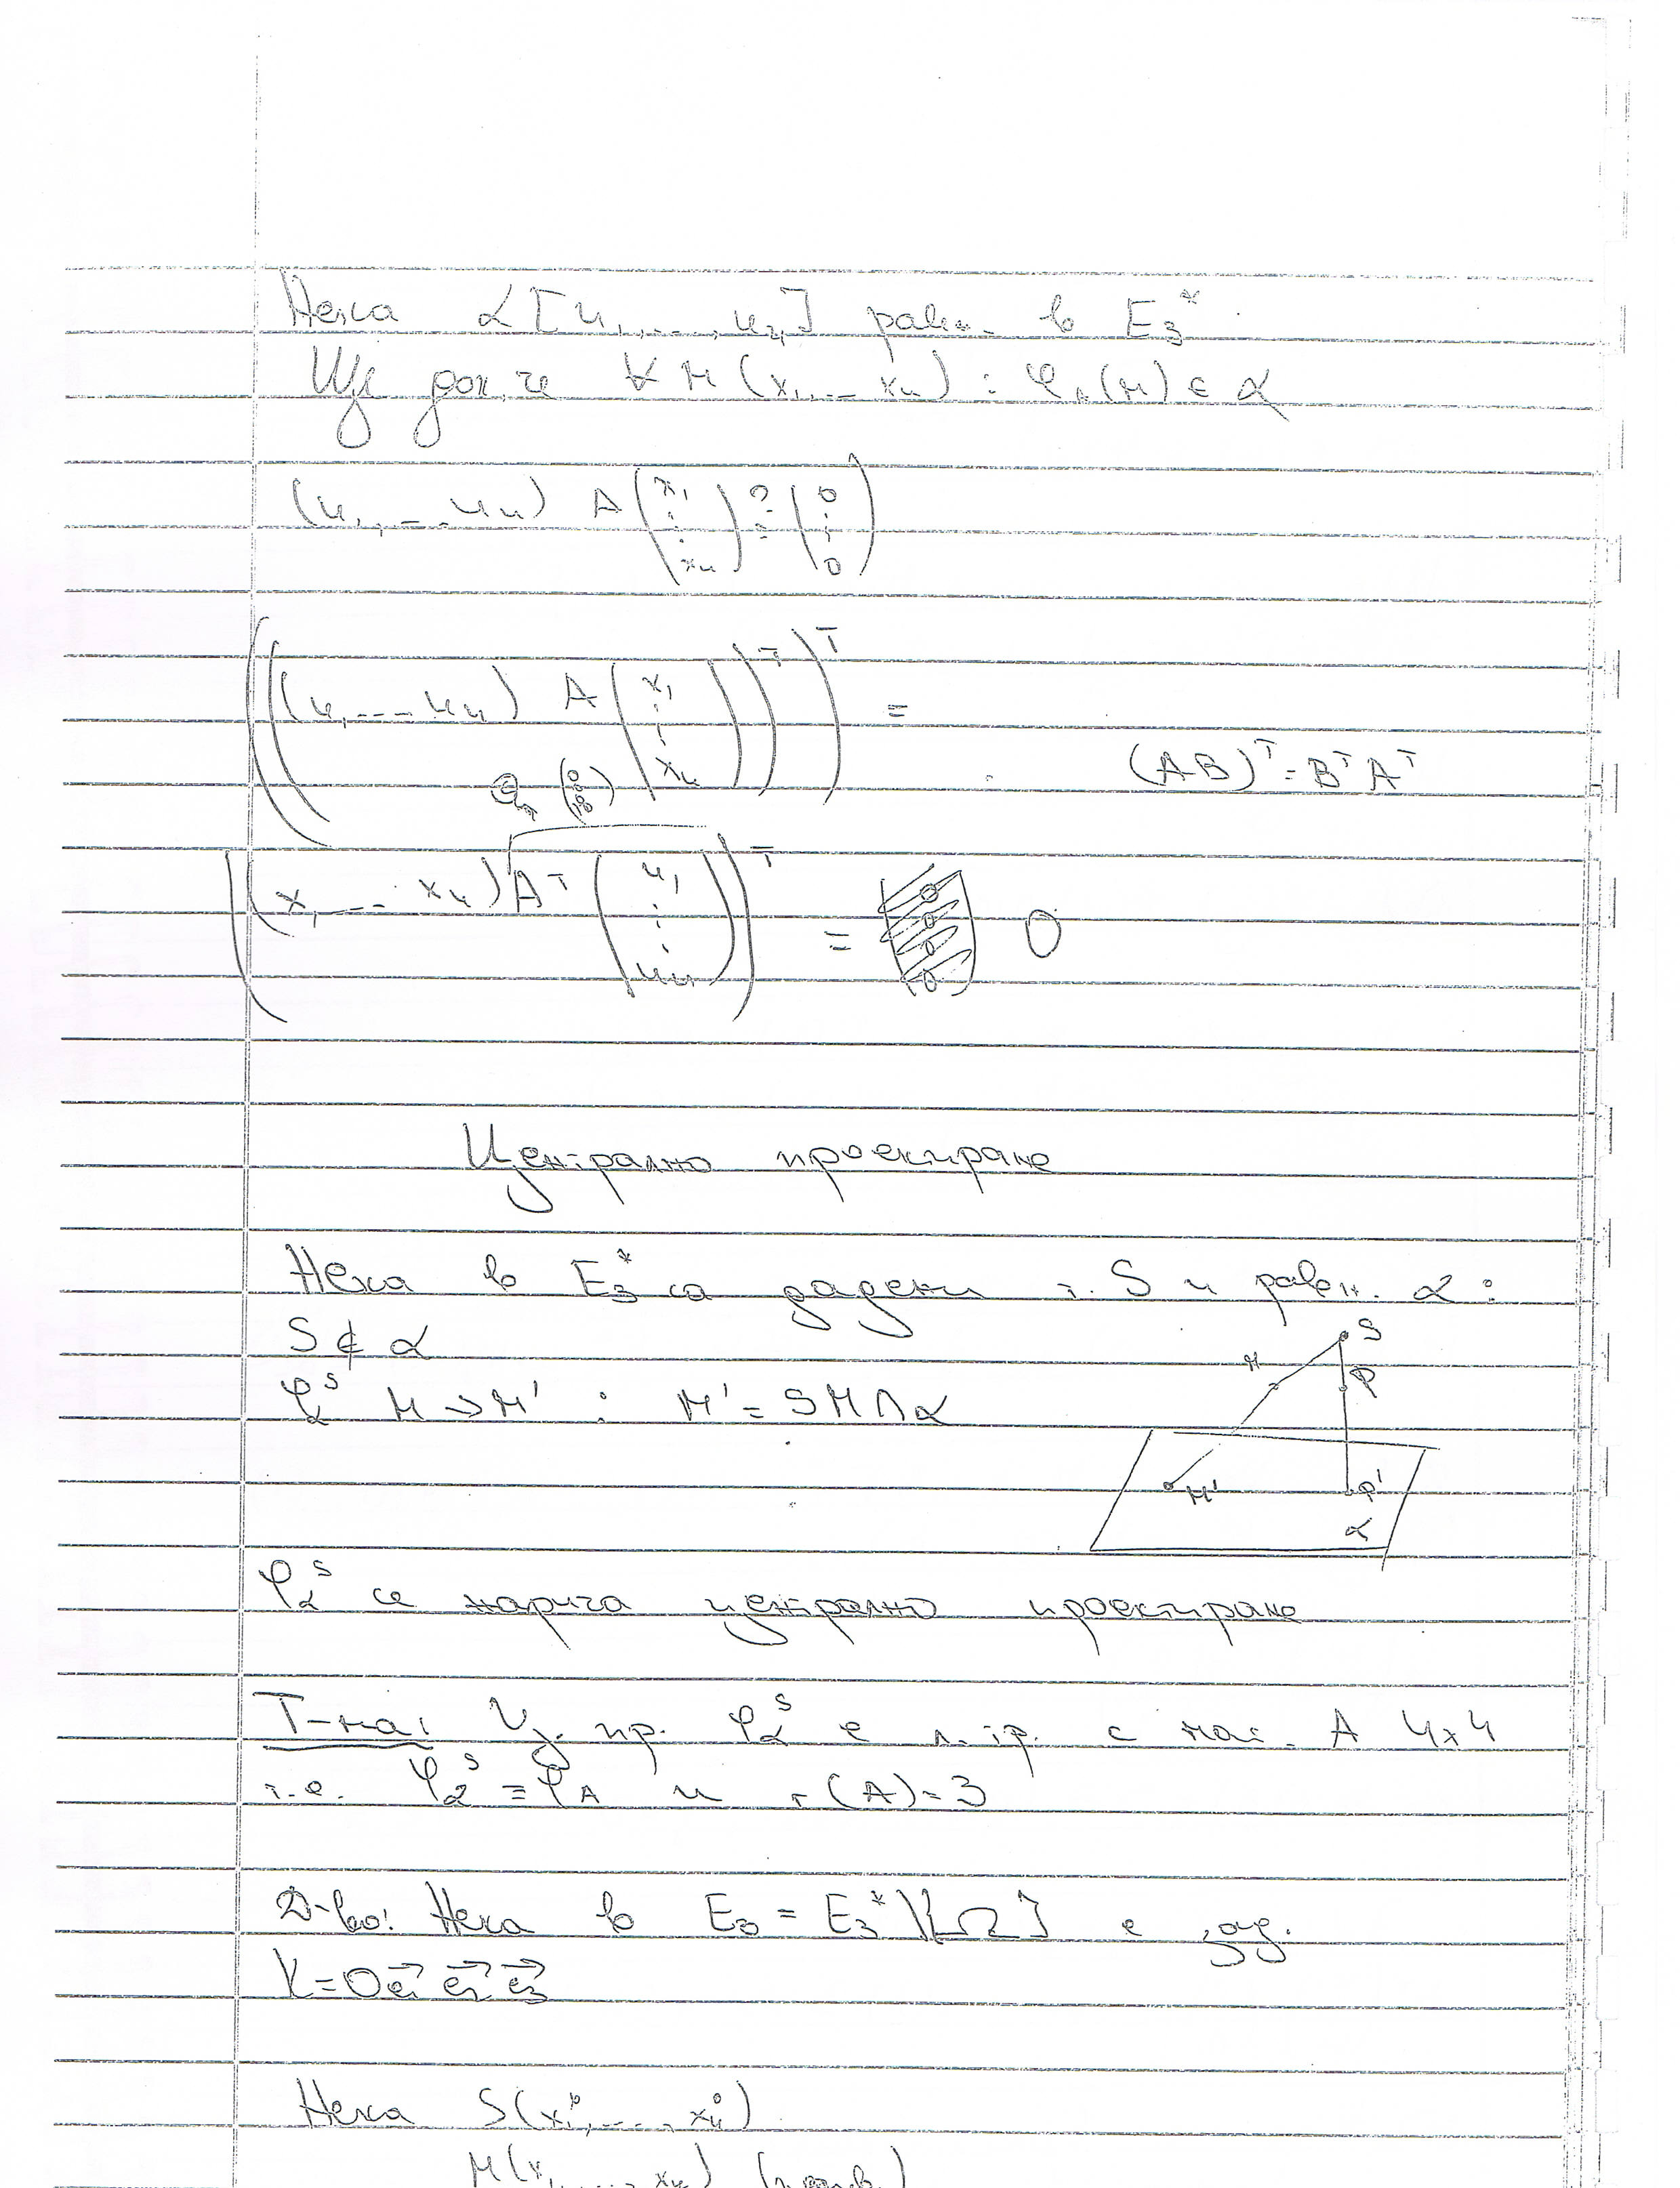 Нека α[u1,...,u4] равн. в E3*
Ще док, че ∀ M(x1,...x4) : φA(M) ∈ α
(u1,...u4) A (x1 ⋮ x4) ?= (0 ⋮ 0)
(((u1,...u4) A (x1 ⋮ x4))ᵀ)ᵀ =
(0 0 0 0)
(AB)ᵀ = BᵀAᵀ
((x1,...x4) Aᵀ (u1 ⋮ u4))ᵀ = 0
Централно проектиране
Нека в E3* са дадени т. S и равн. α :
S ∉ α
φα^S M → M' : M' = SM ∩ α
S
M
P
M'
P'
α
φα^S се нарича централно проектиране
Т-ма: Ц. пр. φα^S е л. тр. с мат. A 4x4
т.е. φα^S ≡ φA и r(A) = 3
Д-во: Нека в E3 = E3* \ [Ω] е зад.
K = Oe1e2e3
Нека S(x1⁰,...,x4⁰)
M(x1,...,x4)